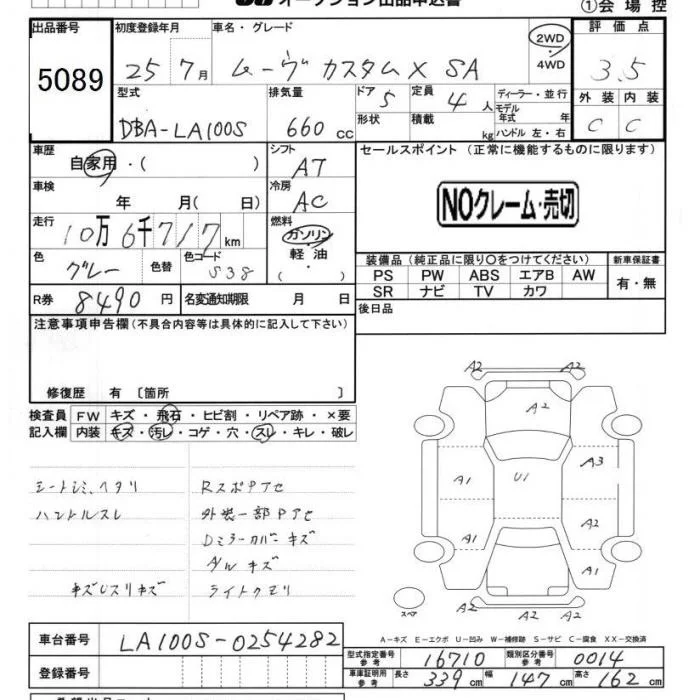 オークション出品申込書
①会場控
出品番号 初度登録年月 車名・グレード 評価点
5089 25年 7月 ムーヴ カスタムX SA 2WD・4WD 3.5
型式 排気量 ドア 5 定員 4人 ディーラー・並行 外装 内装
DBA-LA100S 660cc 形状 積載 kg モデル年式 年 ハンドル 左・右 C C
車歴 自家用・( ) シフト AT セールスポイント (正常に機能するものに限ります)
車検 年 月( 日) 冷房 AC NOクレーム・売切
走行 10万6千717km 燃料 ガソリン・軽油・( )
色 グレー 色替 色コード S38 装備品(純正品に限り〇をつけてください) 新車保証書
PS PW ABS エアB AW 有・無
SR ナビ TV カワ
R券 8490円 名変通知期限 月 日 後日品
注意事項申告欄(不具合内容等は具体的に記入して下さい)
修復歴 有〔箇所 〕
検査員 FW キズ・飛石・ヒビ割・リペア跡・×要
記入欄 内装 キズ・汚レ・コゲ・穴・スレ・キレ・破レ
シートシミ、ヘタリ RスポPアセ
ハンドルスレ 外装一部Pアセ
Dミラーカバーキズ
A/Wキズ
キズUスリキズ ライトクモリ
A2 A2
A2
A1 U1 A3
A2
A1 A1
A2 A2 A2
スペア
A-キズ E-エクボ U-凹み W-補修跡 S-サビ C-腐食 XX-交換済
車台番号 LA100S-0254282
型式指定番号 参考 16710 類別区分番号 参考 0014
登録番号 車庫証明用 参考 長さ 339cm 幅 147cm 高さ 162cm